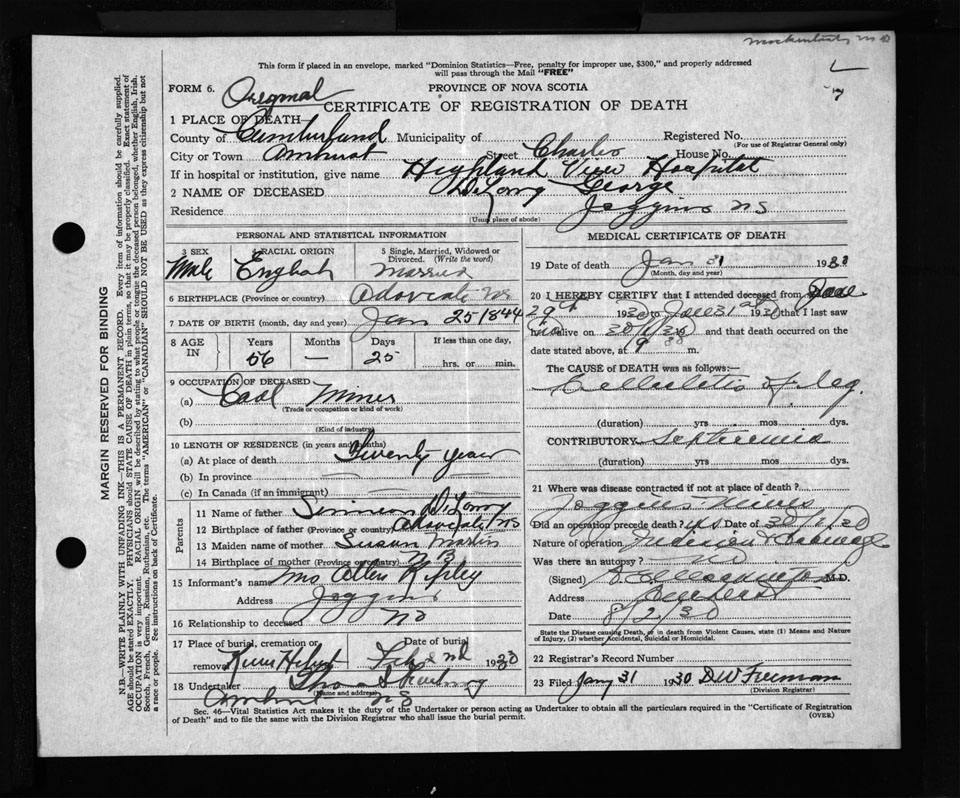 This form if placed in an envelope, marked "Dominion Statistics—Free, penalty for improper use, $300," and properly addressed
will pass through the Mail "FREE"
FORM 6. Original
PROVINCE OF NOVA SCOTIA
CERTIFICATE OF REGISTRATION OF DEATH
1 PLACE OF DEATH—
County of Cumberland Municipality of Registered No.
(For use of Registrar General only)
City or Town Amherst Street Charles House No.
If in hospital or institution, give name Highland View Hospital
2 NAME OF DECEASED DeLong George
Residence Joggins NS
(Usual place of abode)
PERSONAL AND STATISTICAL INFORMATION
3 SEX 4 RACIAL ORIGIN 5 Single, Married, Widowed or
Divorced. (Write the word)
Male English Married
6 BIRTHPLACE (Province or country) Advocate NS
7 DATE OF BIRTH (month, day and year) Jan 25 1844
8 AGE IN Years Months Days If less than one day,
— 25 hrs. or min.
9 OCCUPATION OF DECEASED
(a) Coal Miner
(Trade or occupation or kind of work)
(b)
(Kind of industry)
10 LENGTH OF RESIDENCE (in years and months)
(a) At place of death Twenty years
(b) In province
(c) In Canada (if an immigrant)
Parents
11 Name of father DeLong
12 Birthplace of father (Province or country) Advocate NS
13 Maiden name of mother Susan Martin
14 Birthplace of mother (Province or country) NB
15 Informant's name Allen Ripley
Address Joggins
16 Relationship to deceased no
17 Place of burial, cremation or Date of burial
removal River Hebert Feb 2nd 1930
18 Undertaker
(Name and address)
Amherst NS
MEDICAL CERTIFICATE OF DEATH
19 Date of death Jan 31 193
(Month, day and year)
20 I HEREBY CERTIFY that I attended deceased from Jan
29th 1930 to Jan 31 1930 that I last saw
alive on 30/1/30 and that death occurred on
date stated above, at 9 30 m.
The CAUSE of DEATH was as follows:—
Cellulitis of leg
(duration) yrs mos dys.
CONTRIBUTORY Septicemia
(duration) yrs mos dys.
21 Where was disease contracted if not at place of death?
Joggins Mines
Did an operation precede death? yes Date of 30/1/30
Nature of operation Incision & Drainage
Was there an autopsy? no
(Signed) M.D.
Address Amherst
Date 8/2/30
State the Disease causing Death, or in death from Violent Causes, state (1) Means and
Nature of Injury, (2) whether Accidental, Suicidal or Homicidal.
22 Registrar's Record Number
23 Filed Jany 31 1930 D W Freeman
(Division Registrar)
Sec. 46—Vital Statistics Act makes it the duty of the Undertaker or person acting as Undertaker to obtain all the particulars required in the "Certificate of Registration
of Death" and to file the same with the Division Registrar who shall issue the burial permit.
(OVER)
MARGIN RESERVED FOR BINDING
N.B.—WRITE PLAINLY WITH UNFADING INK—THIS IS A PERMANENT RECORD. Every item of information should be carefully supplied.
AGE should be stated EXACTLY. PHYSICIANS should STATE CAUSE OF DEATH in plain terms, so that it may be properly classified. Exact statement of
OCCUPATION is very important. RACIAL ORIGIN will be described by stating to what people or tongue the deceased person belonged, whether English, Irish,
Scotch, French, German, Russian, Ruthenian, etc. The terms "AMERICAN" or "CANADIAN" SHOULD NOT BE USED as they express citizenship but not
a race or people. See instructions on back of Certificate.